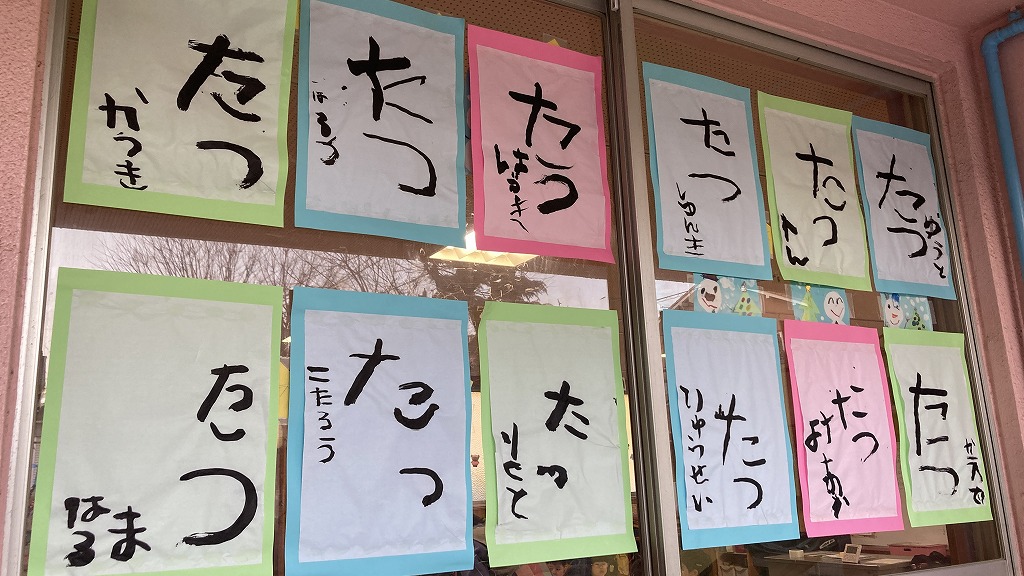 たつ
かつき
たつ
はるう
たつ
はるき
たつ
しゅんき
たつ
れん
たつ
ゆうと
たつ
はるま
たつ
こたろう
たつ
りくと
たつ
りゅうせい
たつ
たつ